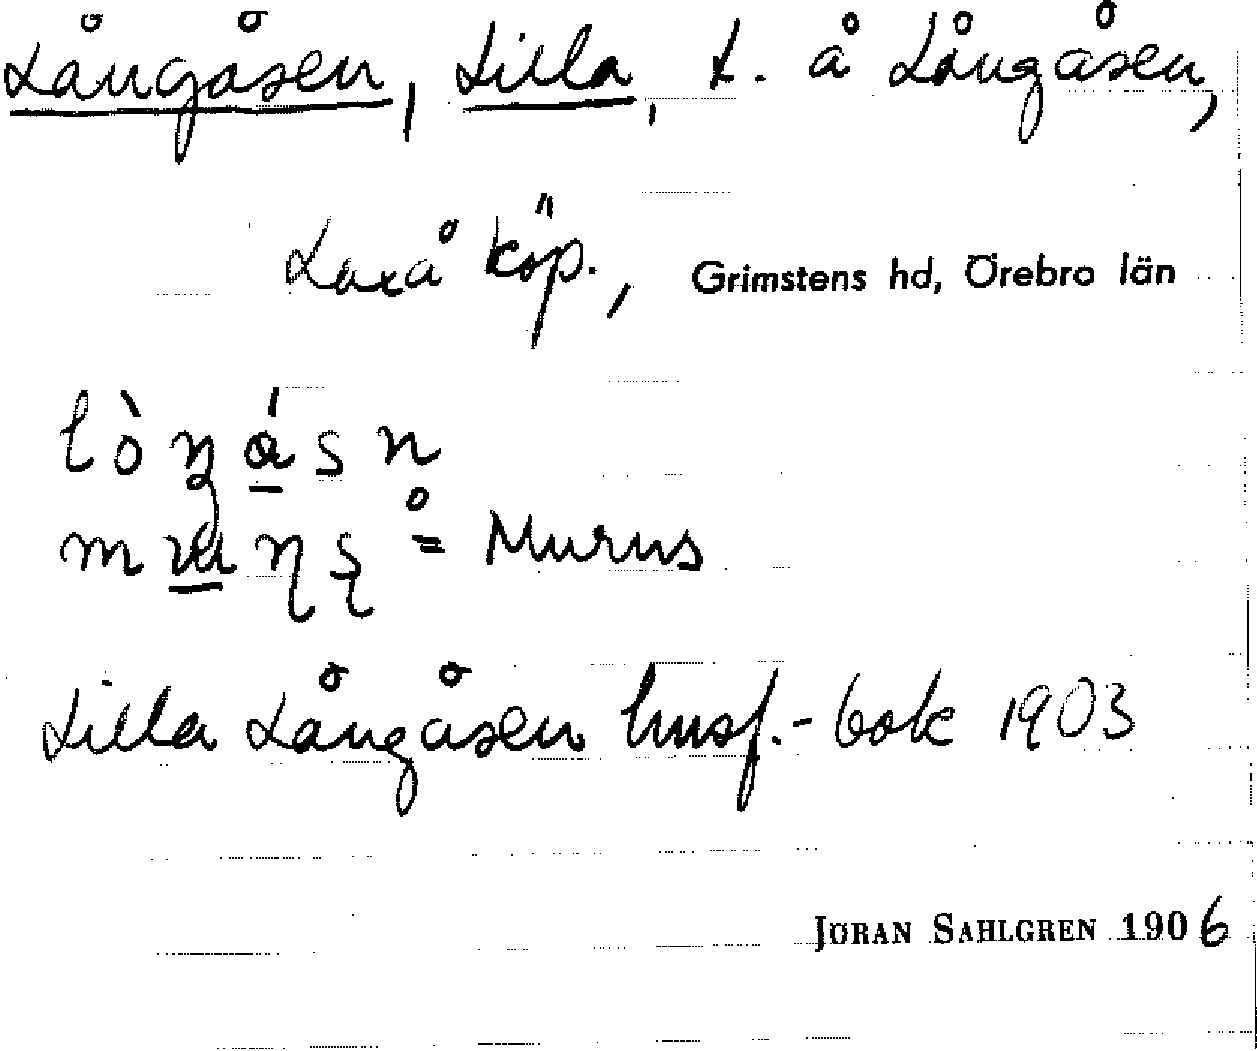 Långåsen, Lilla, t. å Långåsen,
Laxå köp., Grimstens hd, Örebro län
lòŋásn
= Murus
Lilla Långåsen husf.-bok 1903
JÖRAN SAHLGREN 1906